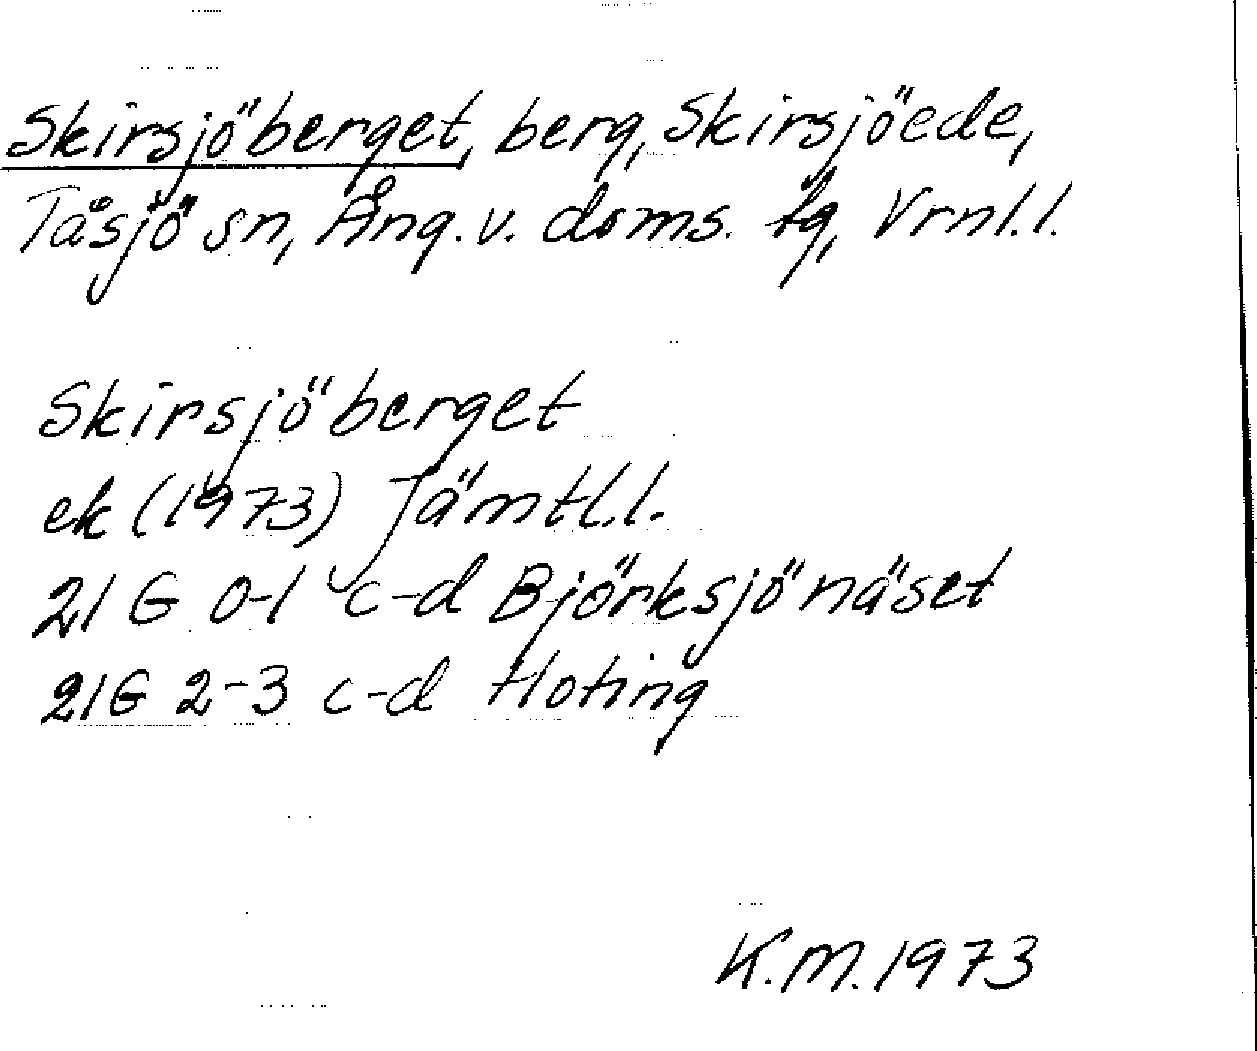 Skirsjöberget, berg, Skirsjöede,
Tåsjö sn, Ång. v. doms. tg, Vrnl. l.
Skirsjöberget
ek (1973) Jämtl. l.
21 G 0-1 c-d Björksjönäset
21G 2-3 c-d Hoting
K.M. 1973